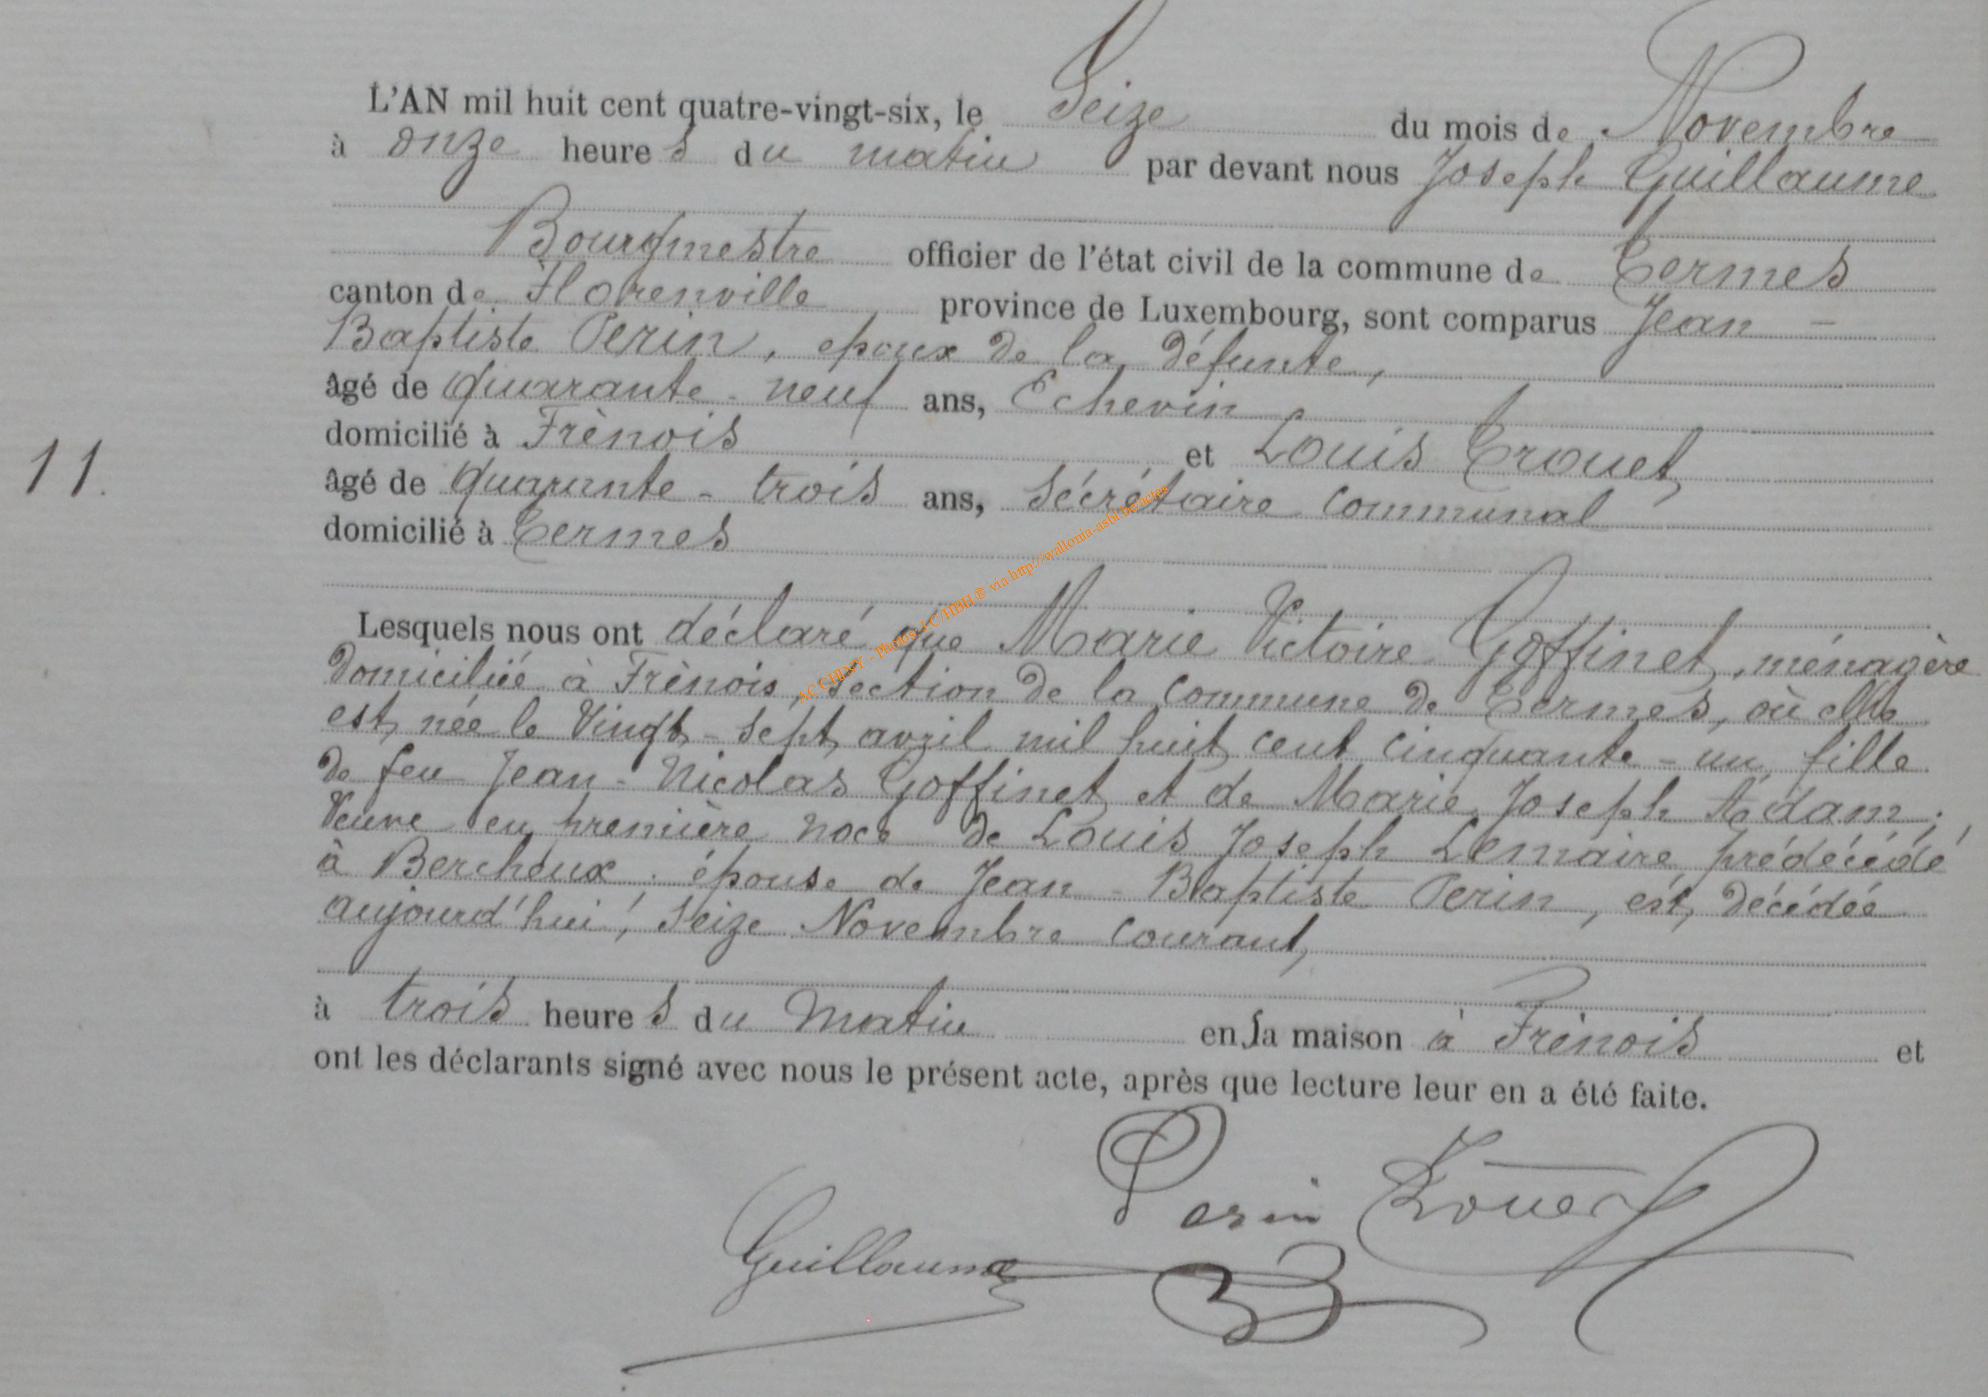 L'AN mil huit cent quatre-vingt-six, le Seize du mois de Novembre
à onze heures du matin par devant nous Joseph Guillaume
Bourgmestre officier de l'état civil de la commune de Termes
canton de Florenville province de Luxembourg, sont comparus Jean-
Baptiste Perin, epoux de la défunte,
âgé de quarante-neuf ans, Echevin
domicilié à Frénois et Louis Trouet,
11.
âgé de quarante-trois ans, Sécrétaire communal
domicilié à Termes
Lesquels nous ont déclaré que Marie Victoire Goffinet, ménagère
domiciliée à Frénois, section de la commune de Termes, où elle
est née le Vingt-sept avril mil huit cent cinquante-un, fille
de feu Jean-Nicolas Goffinet et de Marie Joseph Adam;
Veuve en première noce de Louis Joseph Lemaire prédécédé
à Bercheux; épouse de Jean-Baptiste Perin, est décédée
aujourd'hui, seize Novembre courant,
à trois heures du matin en sa maison à Frénois et
ont les déclarants signé avec nous le présent acte, après que lecture leur en a été faite.
Perin Trouet
Guillaume
AC CHINY - Photos J C HBH ® via http://wallonia-asbl.be/actes